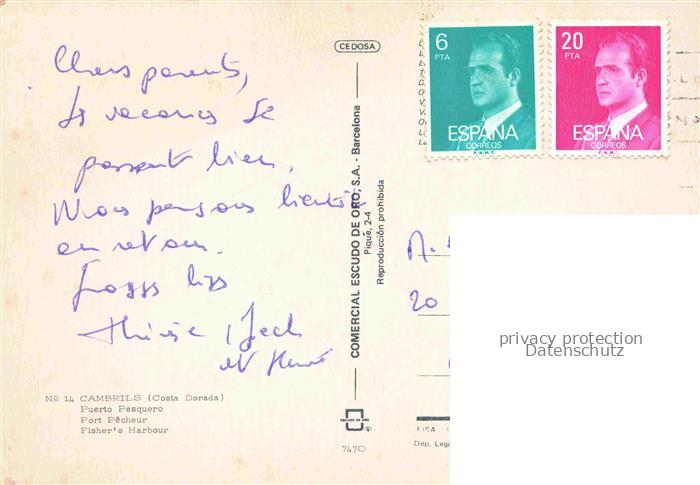 Chers parents,
Les vacances se
passent bien.
Nous pensons bientôt
au retour.
Grosses bises
Thérèse, Jack
et
Nº 14 CAMBRILS (Costa Dorada)
Puerto Pesquero
Port Pêcheur
Fisher's Harbour
CEDOSA
COMERCIAL ESCUDO DE ORO, S.A. - Barcelona
Piqué, 2-4
Reproducción prohibida
ESCUDO DE ORO
®
7470
6
PTA
ESPAÑA
CORREOS
F.N.M.T.
20
PTA
ESPAÑA
CORREOS
F.N.M.T.
M.
20
FISA
Dep. Lega
privacy protection
Datenschutz